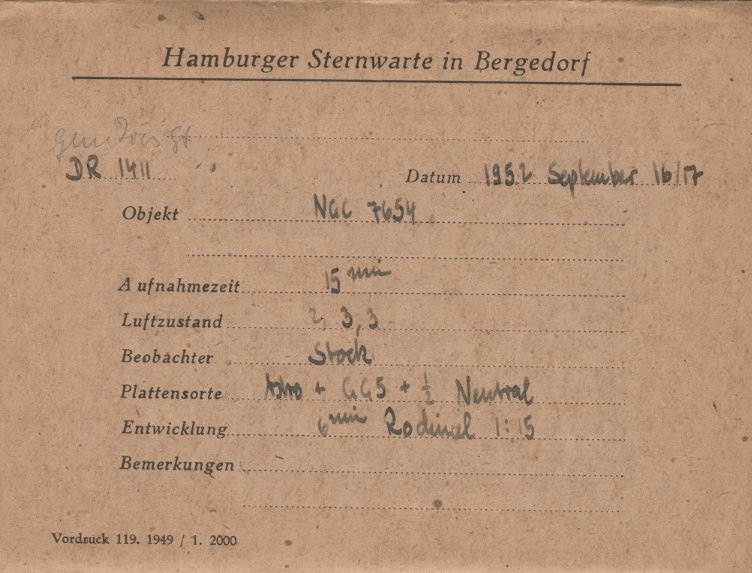 Hamburger Sternwarte in Bergedorf
DR 1411
Datum 1952 September 16/17
Objekt NGC 7654
Aufnahmezeit 15 min
Luftzustand 2, 3, 3
Beobachter Stock
Plattensorte Astro + GG5 + ½ Neutral
Entwicklung 6 min Rodinal 1:15
Bemerkungen
Vordruck 119. 1949 / 1. 2000